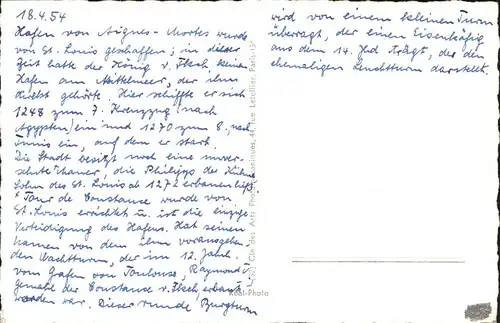 18.4.54
Hafen von Aigues-Mortes wurde
von St. Louis geschaffen; in dieser
Zeit hatte der König v. Frkch keinen
Hafen am Mittelmeer, der ihm
direkt gehörte. Hier schiffte er sich
1248 zum 7. Kreuzzug (nach
Agypten) ein und 1270 zum 8. nach
Tunis ein, auf dem er starb.
Die Stadt besitzt noch eine unver-
sehrte Mauer, die Philipps der Kühne
Sohn des St. Louis ab 1272 erbauen ließ.
* Tour de Constance wurde von
St. Louis errichtet u. ist die einzige
Verteidigung des Hafens. Hat seinen
Namen von dem ihm vorausgehen-
den Wachtturm, der im 12. Jahrh.
vom Grafen von Toulouse, Raymond V
gemahl der Constance v. Frkch erbaut
worden war. Dieser runde Burgturm
wird von einem kleinen Turm
überragt, der einen Eisenkäfig
aus dem 14. Jhd trägt, der den
ehemaligen Leuchtturm darstellt.
Réal-Photo